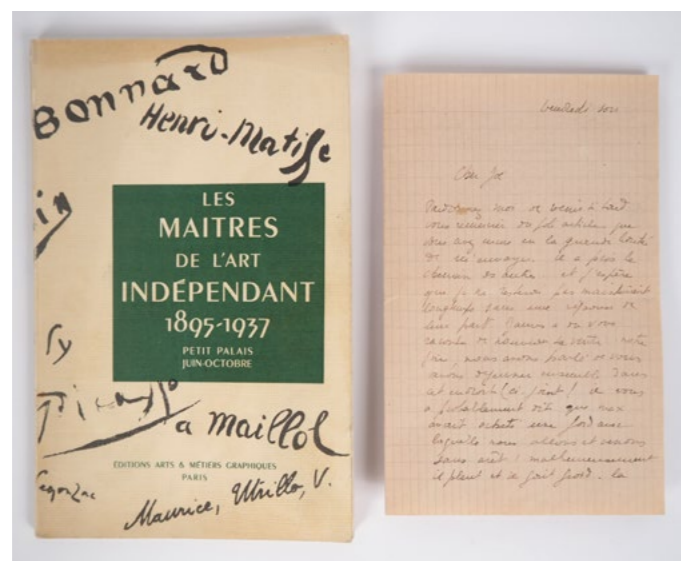 Bonnard
Henri-Matisse
in
LES
MAITRES
DE L'ART
INDÉPENDANT
1895-1937
PETIT PALAIS
JUIN-OCTOBRE
fy
Picasso
a Maillol
ÉDITIONS ARTS & MÉTIERS GRAPHIQUES
PARIS
Segonzac
Maurice, Utrillo, V.
Vendredi soir
Cher Joe
moi de venir si tard
vous remercier du joli article que
vous avez eu la grande bonté
de m'envoyer. Il a pris le
chemin des autres et j'espère
que je ne resterai pas maintenant
longtemps sans une réponse de
leur part.
nous avons parlé de vous
avons déjeuner ensemble dans
cet endroit (ci-joint) de vous
a probablement dit que max
avait acheté une Ford avec
laquelle nous allons et venons
sans arrêt! malheureusement
il pleut et il fait froid. la